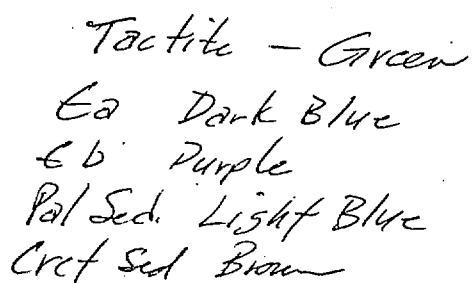 Tactite — Green
€a Dark Blue
€b Purple
Pal Sed. Light Blue
Cret Sed Brown